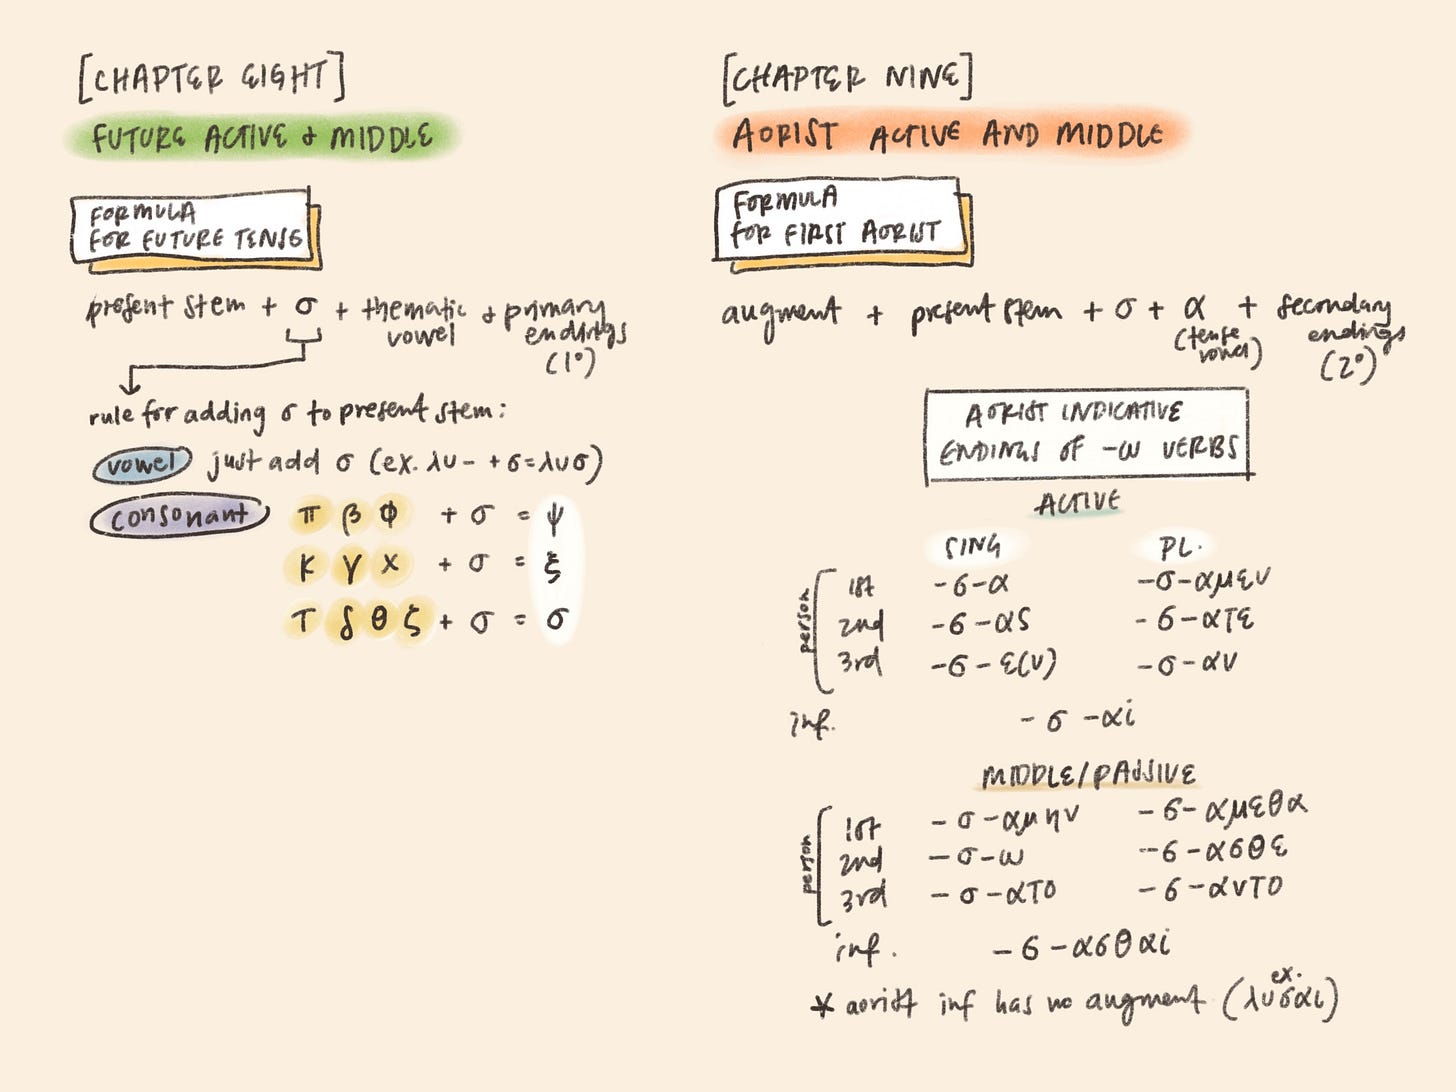 [CHAPTER EIGHT]
FUTURE ACTIVE & MIDDLE
FORMULA
FOR FUTURE TENSE
present stem + σ + thematic vowel + primary endings (1°)
rule for adding σ to present stem:
vowel just add σ (ex. λυ- + σ = λυσ)
consonant π β φ + σ = ψ
κ γ χ + σ = ξ
τ δ θ ζ + σ = σ
[CHAPTER NINE]
AORIST ACTIVE AND MIDDLE
FORMULA
FOR FIRST AORIST
augment + present stem + σ + α (tense vowel) + secondary endings (2°)
AORIST INDICATIVE
ENDINGS OF -ω VERBS
ACTIVE
SING PL.
person
1st -σ-α -σ-αμεν
2nd -σ-ας -σ-ατε
3rd -σ-ε(ν) -σ-αν
inf. -σ-αi
MIDDLE/PASSIVE
person
1st -σ-αμην -σ-αμεθα
2nd -σ-ω -σ-ασθε
3rd -σ-ατο -σ-αντο
inf. -σ-ασθαi
* aorist inf has no augment (ex. λυσαι)